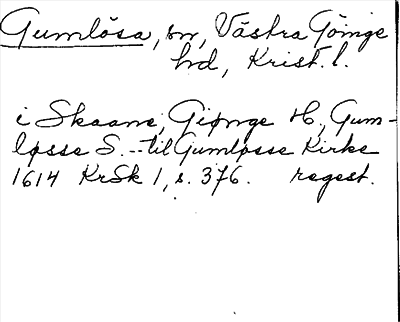 Gumlösa, sn, Västra Göinge
hd, Krist. l.
i Skaane, Giønge H, Gum-
løsse S. -- til Gumløsse Kirke
1614 KrSk 1, s. 376. regest.